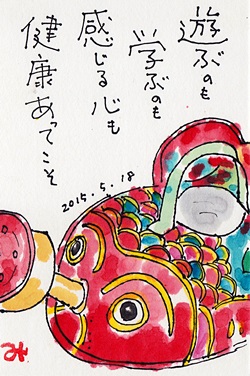 遊ぶのも
学ぶのも
感じる心も
健康あってこそ
2015.5.18
み